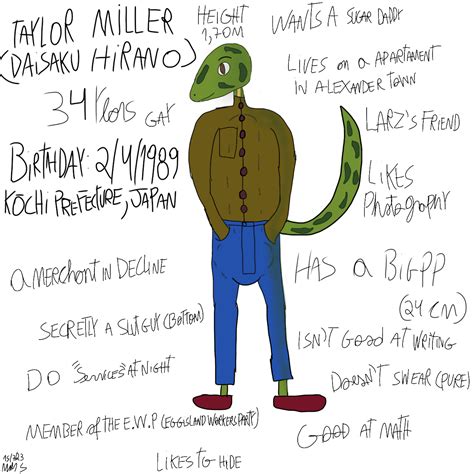 TAYLOR MILLER
(DAISAKU HIRANO)
34 YEARS GAY
BIRTHDAY: 2/4/1989
KŌCHI PREFECTURE, JAPAN
HEIGHT
1,70M
WANTS A SUGAR DADDY
LIVES ON a APARTAMENT
IN ALEXANDER TOWN
LARZ'S FRIEND
LIKES
PhotoGRAPHY
HAS a BIG PP
(24 CM)
ISN'T GOOD AT WRITING
DOESN'T SWEAR (PURE)
GOOD AT MATH
a MERCHANT IN DECLINE
SECRETLY A SLUT GUY (BOTTOM)
DO "SERVICES" AT NIGHT
MEMBER OF THE E.W.P (EGGISLAND WORKERS PARTY)
LIKES TO HIDE